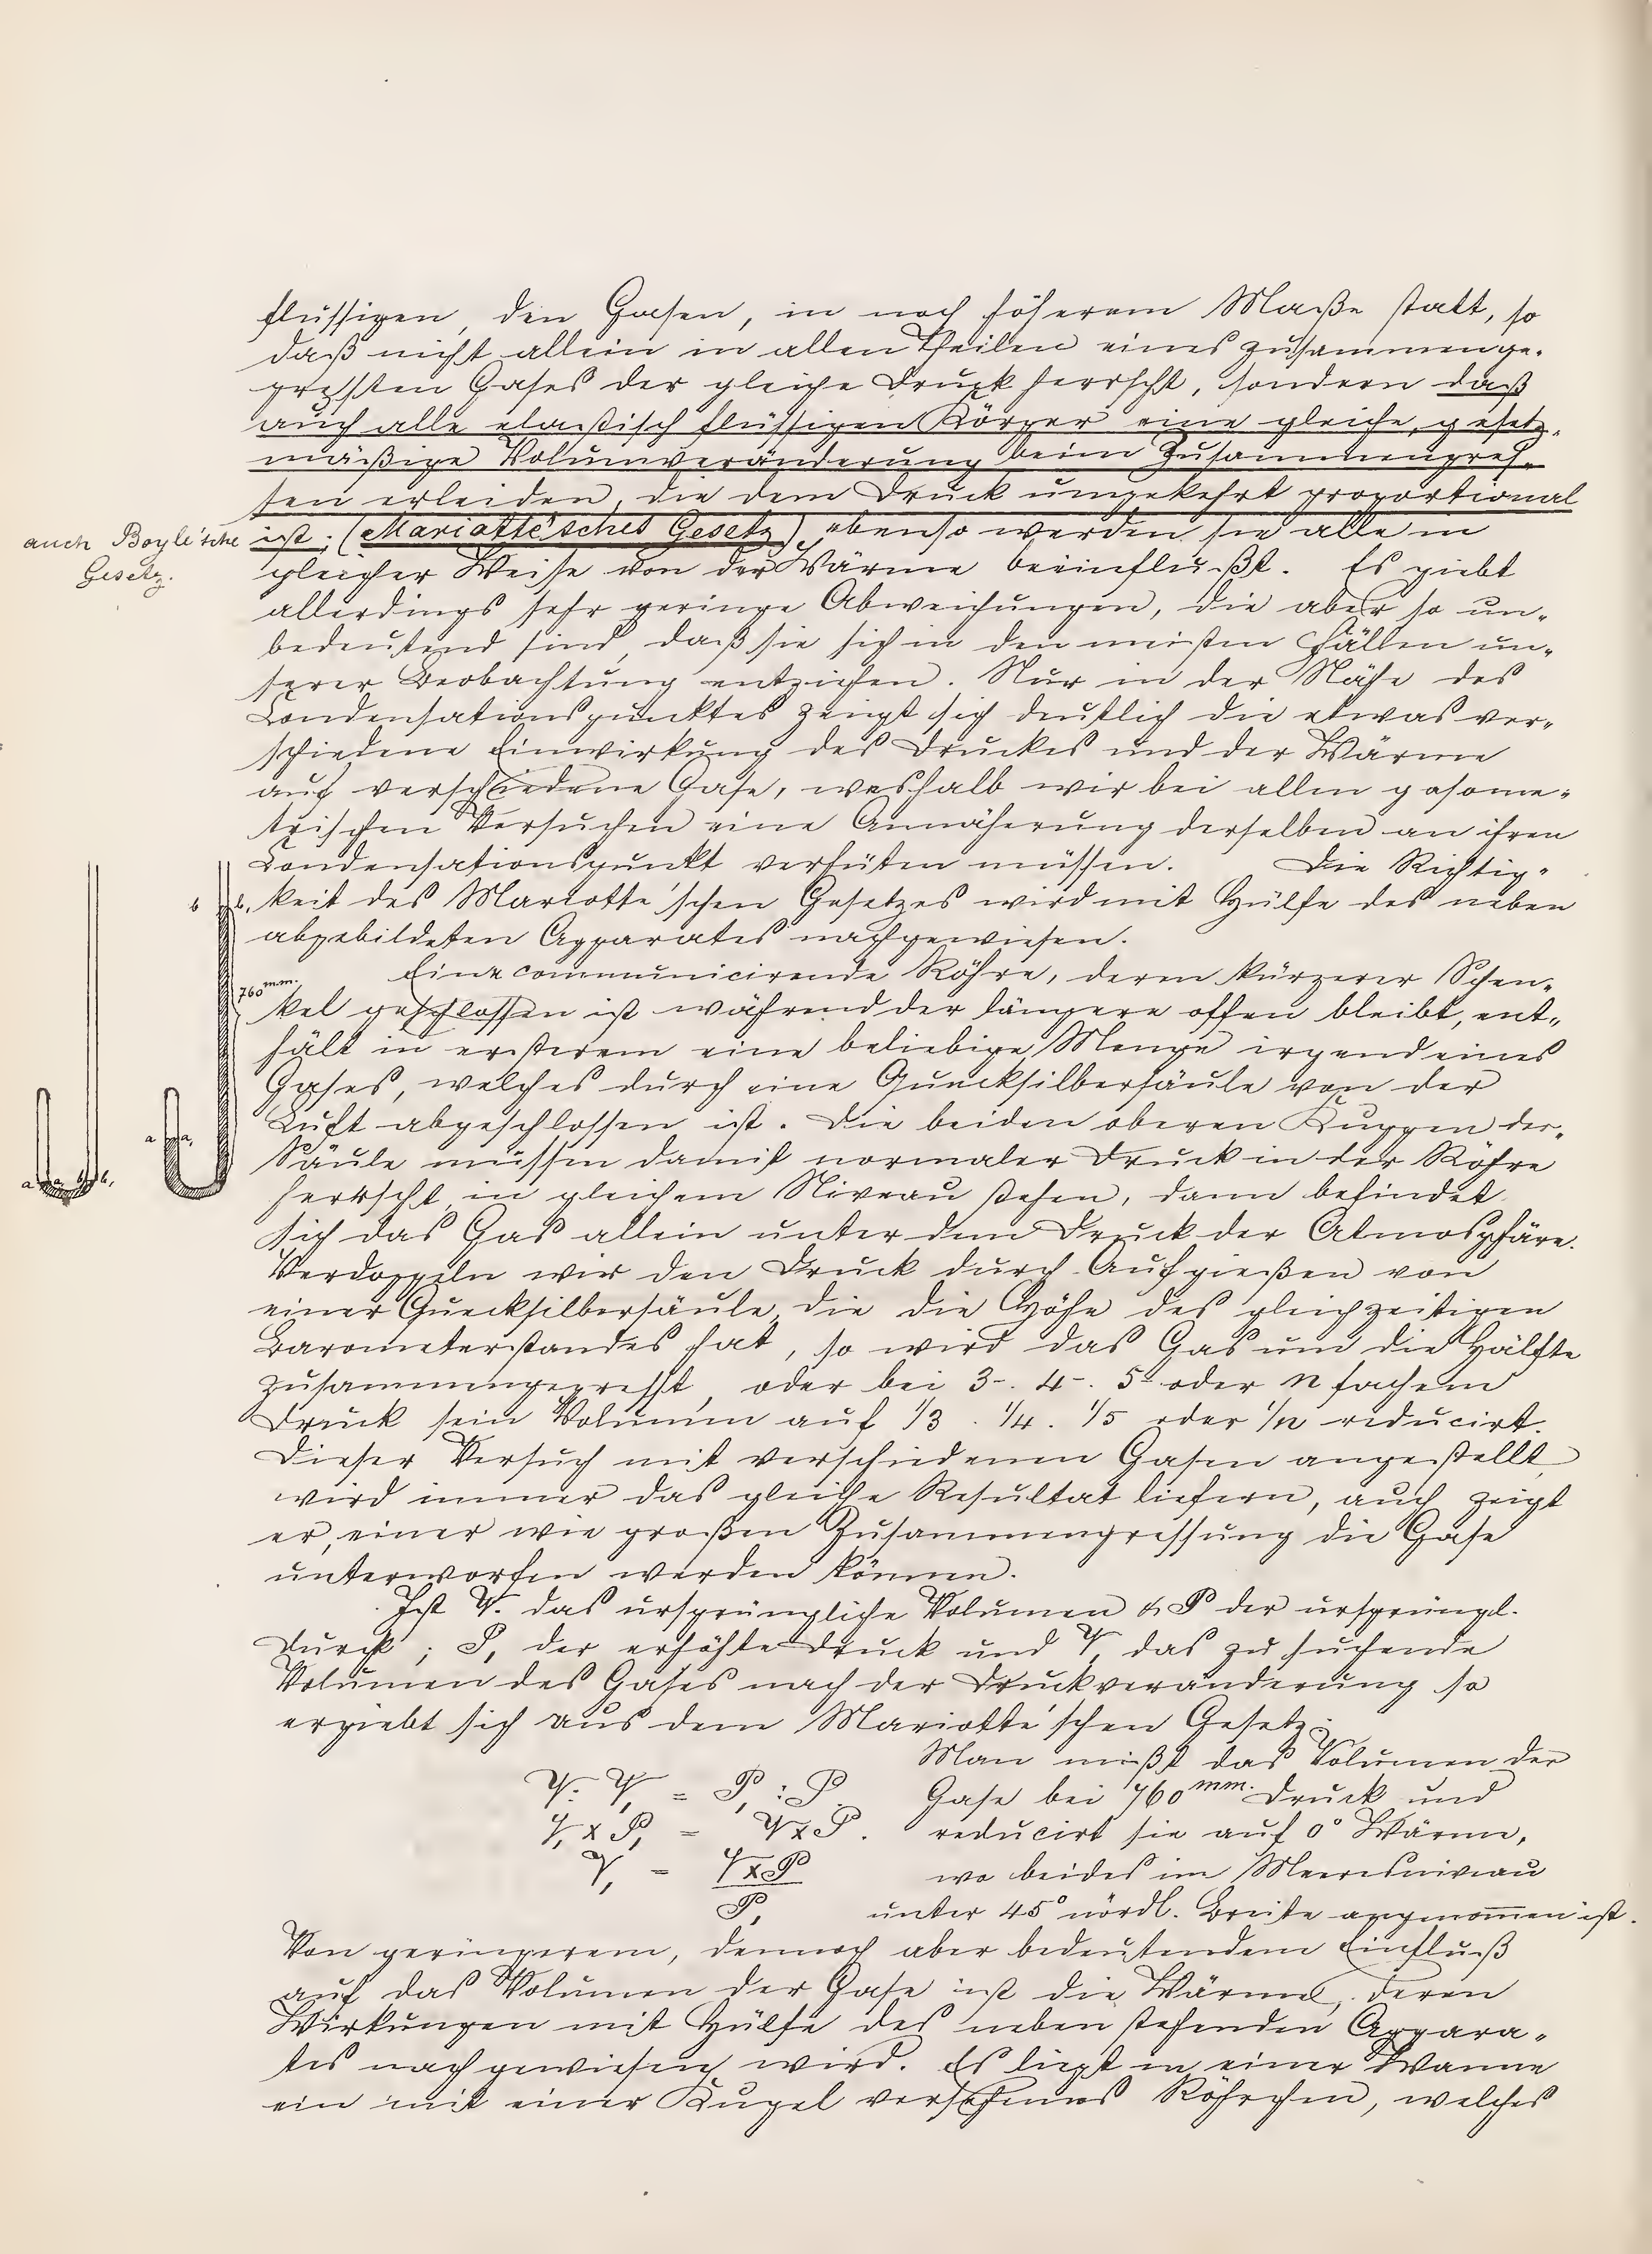 flüssigen, den Gasen, in noch höherem Maße statt, so
daß nicht allein in allen Theilen eines zusammenge-
pressten Gases der gleiche Druck herrscht, sondern daß
auch alle elastisch flüssigen Körper eine gleiche, gesetz-
mäßige Volumveränderung beim Zusammenpres-
sen erleiden, die dem Druck umgekehrt proportional
auch Boyle'sche
Gesetz.
ist; (Mariotte'sches Gesetz), ebenso werden sie alle in
gleicher Weise von der Wärme beeinflußt. Es giebt
allerdings sehr geringe Abweichungen, die aber so un-
bedeutend sind, daß sie sich in den meisten Fällen un-
serer Beobachtung entziehen. Nur in der Nähe des
Condensationspunktes zeigt sich deutlich die etwas ver-
schiedene Einwirkung des Druckes und der Wärme
auf verschiedene Gase, weshalb wir bei allen gasome-
trischen Versuchen eine Annäherung derselben an ihren
Condensationspunkt verhüten müssen. Die Richtig-
b b, keit des Mariotte'schen Gesetzes wird mit Hülfe des neben
abgebildeten Apparates nachgewiesen.
Eine communicirende Röhre, deren kürzerer Schen-
760 mm.
kel geschlossen ist während der längere offen bleibt, ent-
hält in ersterem eine beliebige Menge irgend eines
Gases, welches durch eine Quecksilbersäule von der
Luft abgeschlossen ist. Die beiden oberen Kuppen der
a a,
Säule müssen damit normaler Druck in der Röhre
a a, b b,
herrscht, in gleichem Niveau stehen, dann befindet
sich das Gas allein unter dem Druck der Atmosphäre.
Verdoppeln wir den Druck durch Aufgießen von
einer Quecksilbersäule, die die Höhe des gleichzeitigen
Barometerstandes hat, so wird das Gas um die Hälfte
zusammengepresst, oder bei 3-. 4-. 5- oder n fachem
Druck sein Volumen auf 1/3. 1/4. 1/5 oder 1/n reducirt.
Dieser Versuch mit verschiedenen Gasen angestellt
wird immer das gleiche Resultat liefern, auch zeigt
er, einer wie großen Zusammenpressung die Gase
unterworfen werden können.
Ist V. das ursprüngliche Volumen & P der ursprüngl.
Druck; P, der erhöhte Druck und V, das zu suchende
Volumen des Gases nach der Druckveränderung so
ergiebt sich aus dem Mariotte'schen Gesetz:
Man mißt das Volumen der
V : V, = P, : P. Gase bei 760 mm. Druck und
V, x P, = V x P. reducirt sie auf 0° Wärme,
V, = V x P wo beides im Meeresniveau
P, unter 45° nördl. Breite angenommen ist.
Von geringerem, dennoch aber bedeutendem Einfluß
auf das Volumen der Gase ist die Wärme, deren
Wirkungen mit Hülfe des nebenstehenden Appara-
tes nachgewiesen wird. Es liegt in einer Wanne
ein mit einer Kugel versehenes Röhrchen, welches